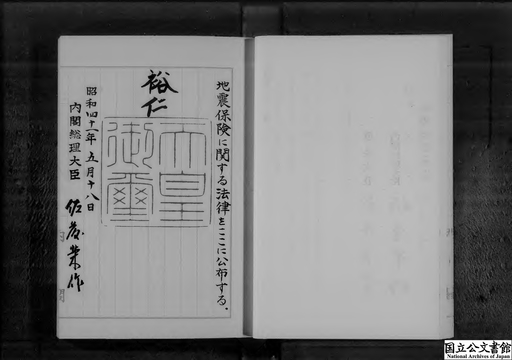 地震保険に関する法律をここに公布する。
裕仁
天皇御璽
昭和四十一年五月十八日
内閣総理大臣 佐藤榮作
国立公文書館
National Archives of Japan